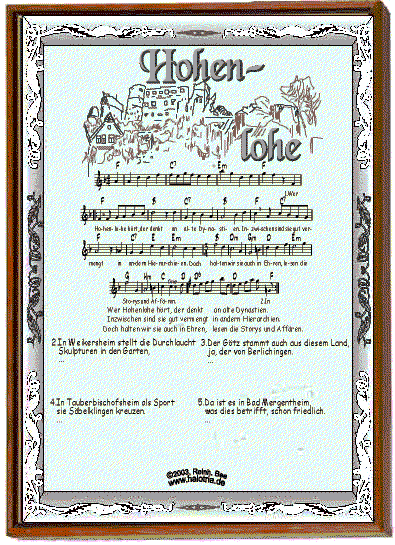 Hohen-
lohe
F C7 Em F
1.Wer
F B C7 B C7
Ho-hen-lo-he hört, der denkt an al-te Dy-na-sti-en. In-zwi-schen sind sie gut ver-
F E Em B Dm Gm D Em
mengt in an-dern Hie-rar-chi-en. Doch hal-ten wir sie auch in Eh-ren, le-sen die
G Hm C D D F
Sto-rys und Af-fä-ren. 2.In
Wer Hohenlohe hört, der denkt an alte Dynastien.
Inzwischen sind sie gut vermengt in andern Hierarchien.
Doch halten wir sie auch in Ehren, lesen die Storys und Affären.
2.In Weikersheim stellt die Durchlaucht
Skulpturen in den Garten,
...
3.Der Götz stammt auch aus diesem Land,
ja, der von Berlichingen.
...
4.In Tauberbischofsheim als Sport
sie Säbelklingen kreuzen.
...
5.Da ist es in Bad Mergentheim,
was dies betrifft, schon friedlich.
...
©2003, Reinh. Bee
www.halotria.de